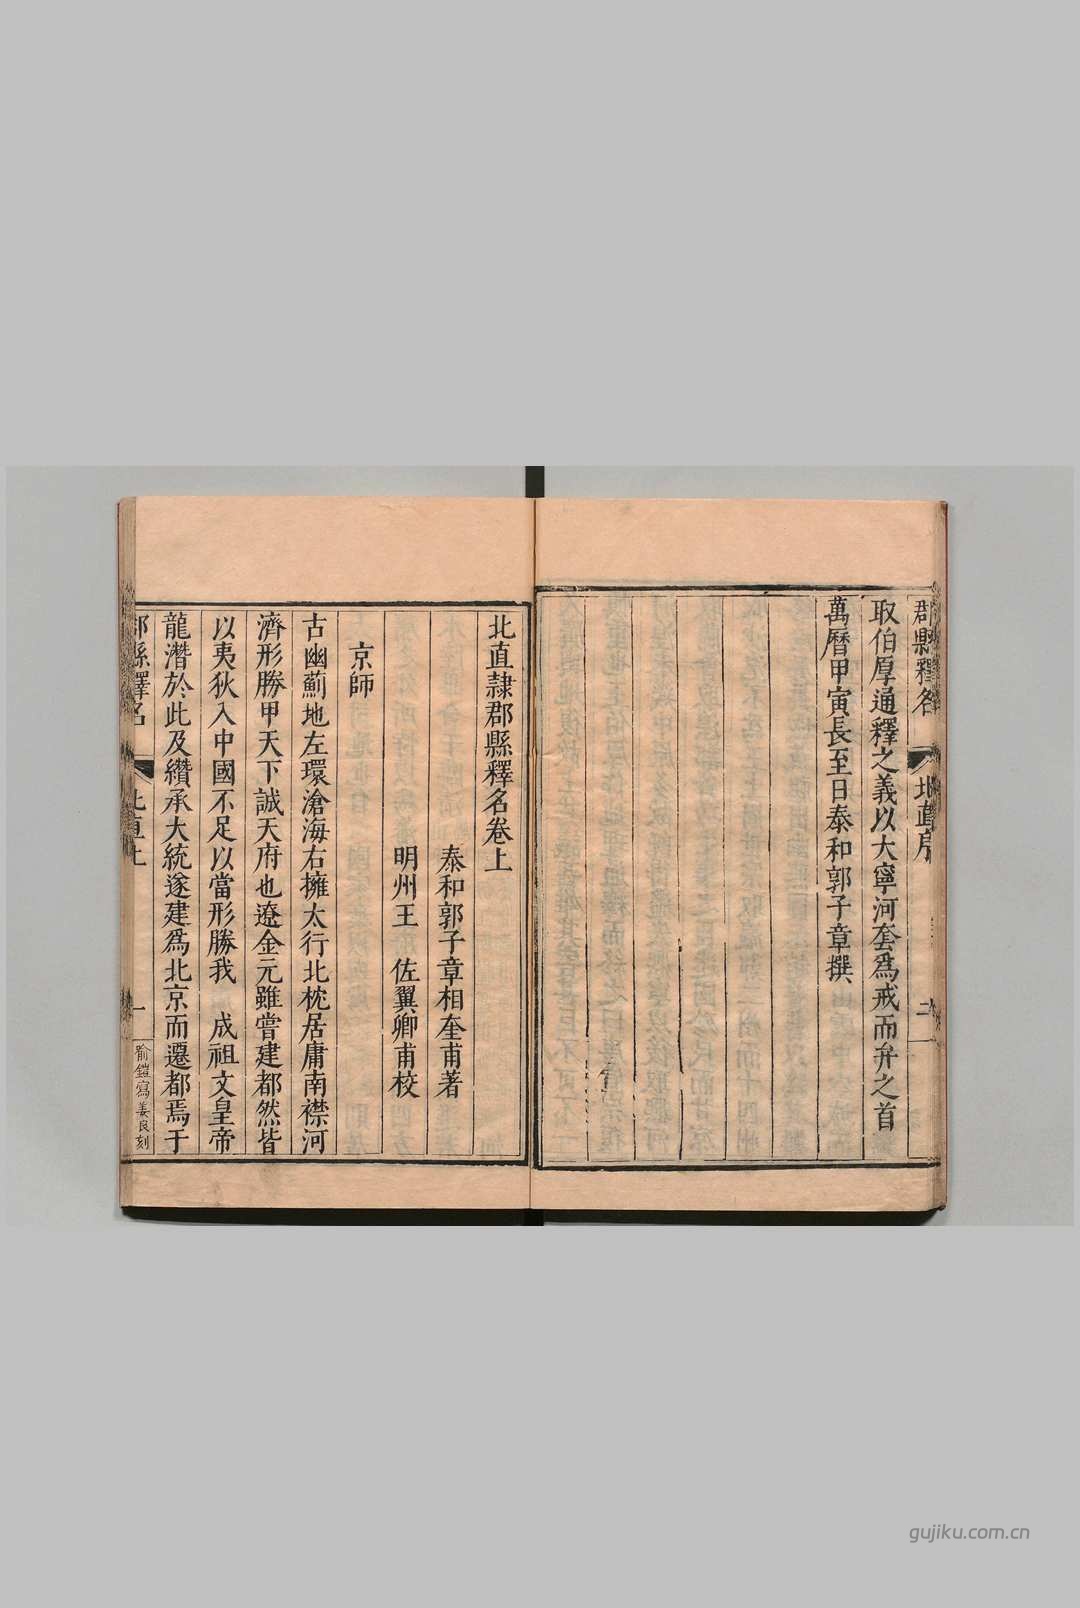 郡縣釋名
北直序
二
取伯厚通釋之義以大寧河套為戒而弁之首
萬曆甲寅長至日泰和郭子章撰
北直隸郡縣釋名卷上
泰和郭子章相奎甫著
明州王　佐翼卿甫校
京師
古幽薊地左環滄海右擁太行北枕居庸南襟河
濟形勝甲天下誠天府也遼金元雖嘗建都然皆
以夷狄入中國不足以當形勝我　成祖文皇帝
龍潛於此及纘承大統遂建為北京而遷都焉于
郡縣釋名
北直上
一
喻鎧寫姜良刻
gujiku.com.cn